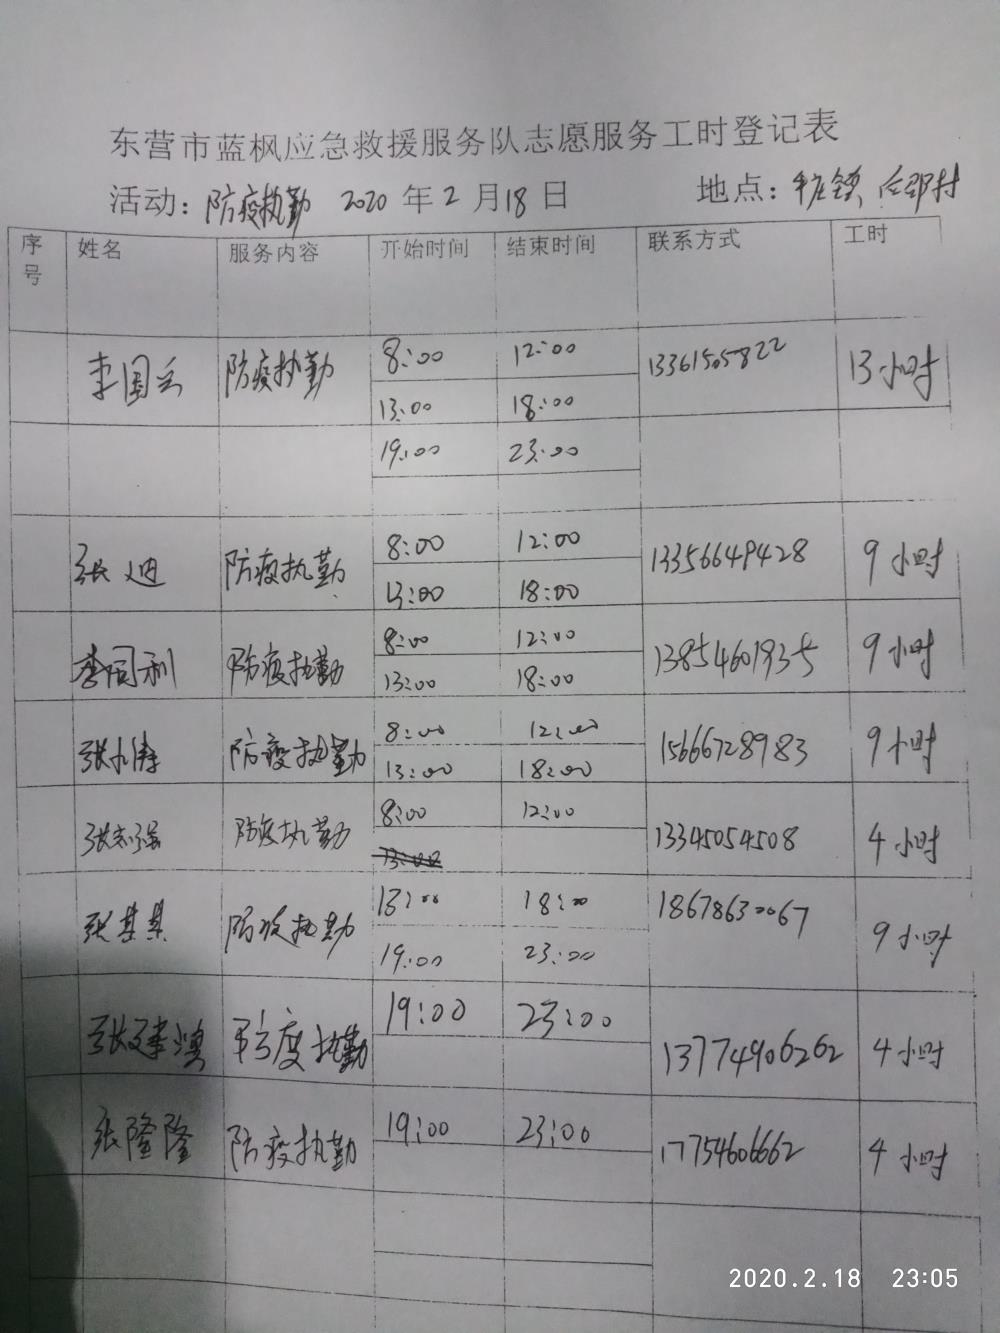 东营市蓝枫应急救援服务队志愿服务工时登记表
活动：防疫执勤 2020 年 2 月 18 日 地点：牛庄镇
序号 姓名 服务内容 开始时间 结束时间 联系方式 工时
李国云 防疫执勤 8:00 12:00 13361505822 13小时
13:00 18:00
19:00 23:00
张迪 防疫执勤 8:00 12:00 13356649428 9小时
13:00 18:00
防疫执勤 8:00 12:00 13854601935 9小时
13:00 18:00
防疫执勤 8:00 12:00 15666728983 9小时
13:00 18:00
张志强 防疫执勤 8:00 12:00 13345054508 4小时
13:00
张其其 防疫执勤 13:00 18:00 18678630067 9小时
19:00 23:00
防疫执勤 19:00 23:00 13774906262 4小时
张隆隆 防疫执勤 19:00 23:00 17754606662 4小时
2020.2.18 23:05